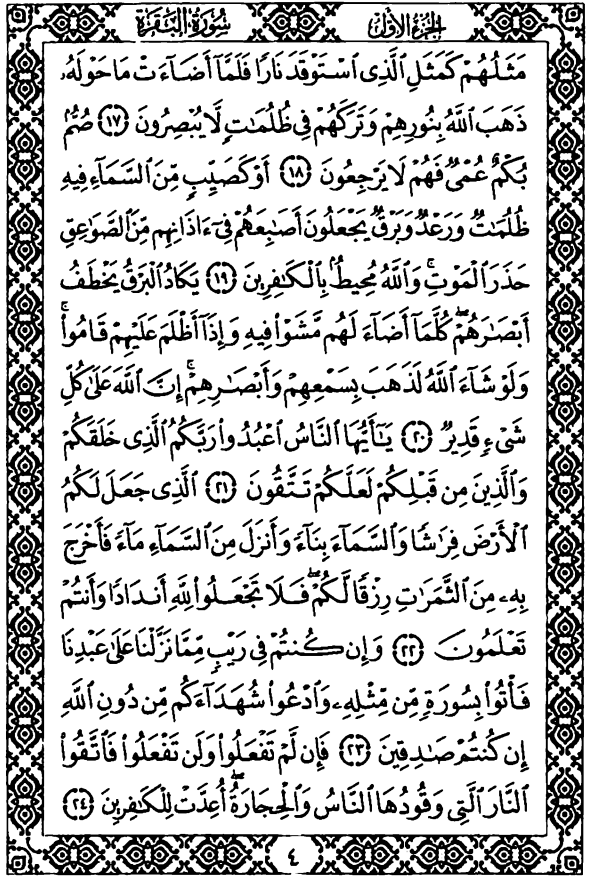 سُورَةُ البَقَرَةِ الجُزءُ الأوَّلُ
مَثَلُهُمْ كَمَثَلِ ٱلَّذِى ٱسْتَوْقَدَ نَارًا فَلَمَّآ أَضَآءَتْ مَا حَوْلَهُۥ
ذَهَبَ ٱللَّهُ بِنُورِهِمْ وَتَرَكَهُمْ فِى ظُلُمَٰتٍ لَّا يُبْصِرُونَ ١٧ صُمٌّۢ
بُكْمٌ عُمْىٌ فَهُمْ لَا يَرْجِعُونَ ١٨ أَوْ كَصَيِّبٍ مِّنَ ٱلسَّمَآءِ فِيهِ
ظُلُمَٰتٌ وَرَعْدٌ وَبَرْقٌ يَجْعَلُونَ أَصَٰبِعَهُمْ فِىٓ ءَاذَانِهِم مِّنَ ٱلصَّوَٰعِقِ
حَذَرَ ٱلْمَوْتِ ۚ وَٱللَّهُ مُحِيطٌۢ بِٱلْكَٰفِرِينَ ١٩ يَكَادُ ٱلْبَرْقُ يَخْطَفُ
أَبْصَٰرَهُمْ ۖ كُلَّمَآ أَضَآءَ لَهُم مَّشَوْا۟ فِيهِ وَإِذَآ أَظْلَمَ عَلَيْهِمْ قَامُوا۟ ۚ
وَلَوْ شَآءَ ٱللَّهُ لَذَهَبَ بِسَمْعِهِمْ وَأَبْصَٰرِهِمْ ۚ إِنَّ ٱللَّهَ عَلَىٰ كُلِّ
شَىْءٍ قَدِيرٌ ٢٠ يَٰٓأَيُّهَا ٱلنَّاسُ ٱعْبُدُوا۟ رَبَّكُمُ ٱلَّذِى خَلَقَكُمْ
وَٱلَّذِينَ مِن قَبْلِكُمْ لَعَلَّكُمْ تَتَّقُونَ ٢١ ٱلَّذِى جَعَلَ لَكُمُ
ٱلْأَرْضَ فِرَٰشًا وَٱلسَّمَآءَ بِنَآءً وَأَنزَلَ مِنَ ٱلسَّمَآءِ مَآءً فَأَخْرَجَ
بِهِۦ مِنَ ٱلثَّمَرَٰتِ رِزْقًا لَّكُمْ ۖ فَلَا تَجْعَلُوا۟ لِلَّهِ أَندَادًا وَأَنتُمْ
تَعْلَمُونَ ٢٢ وَإِن كُنتُمْ فِى رَيْبٍ مِّمَّا نَزَّلْنَا عَلَىٰ عَبْدِنَا
فَأْتُوا۟ بِسُورَةٍ مِّن مِّثْلِهِۦ وَٱدْعُوا۟ شُهَدَآءَكُم مِّن دُونِ ٱللَّهِ
إِن كُنتُمْ صَٰدِقِينَ ٢٣ فَإِن لَّمْ تَفْعَلُوا۟ وَلَن تَفْعَلُوا۟ فَٱتَّقُوا۟
ٱلنَّارَ ٱلَّتِى وَقُودُهَا ٱلنَّاسُ وَٱلْحِجَارَةُ ۖ أُعِدَّتْ لِلْكَٰفِرِينَ ٢٤
٤